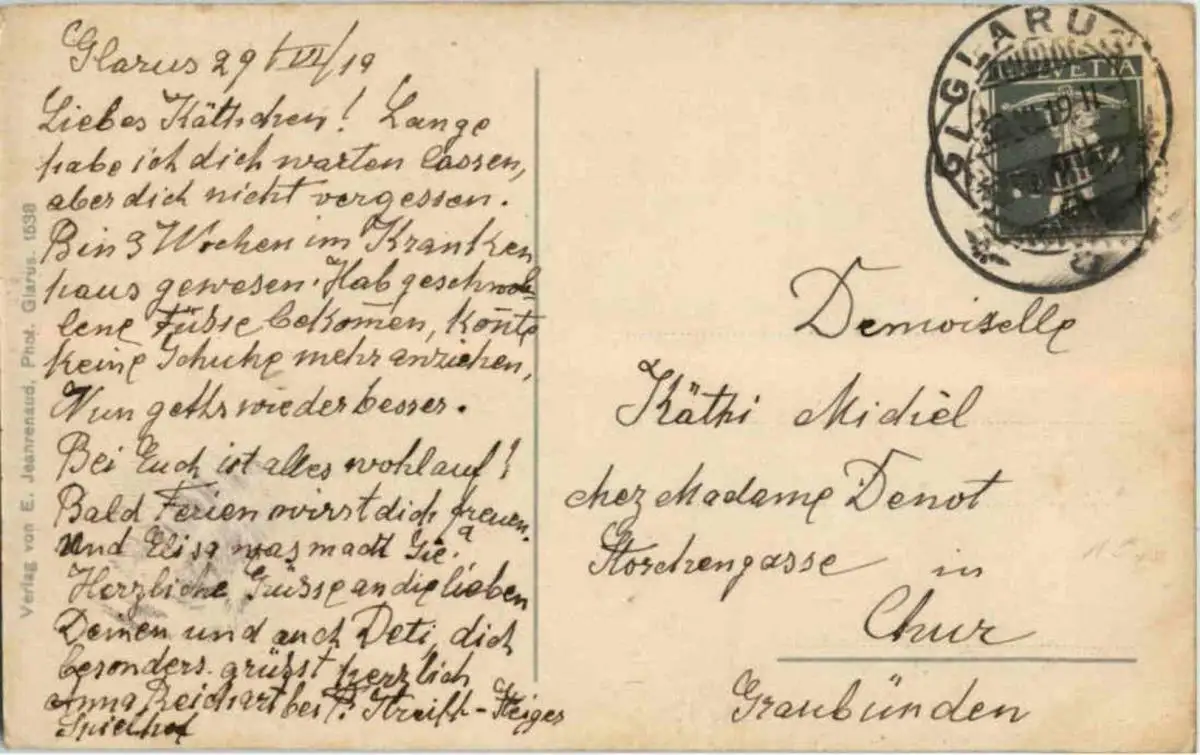 Glarus 29/VI/19
Liebes Käthchen! Lange
habe ich dich warten lassen,
aber dich nicht vergessen.
Bin 3 Wochen im Kranken
haus gewesen. Hab geschwol
lene Füsse bekom̄en, kon̄te
keine Schuhe mehr anziehen,
Nun geths wieder besser.
Bei Euch ist alles wohlauf!
Bald Ferien wirst dich freuen.
Und Elisa was macht Sie?
Herzliche Grüsse an die lieben
Deinen und auch Deti, dich
besonders grüsst herzlich
Anna Reichart bei Streiff-
Spielhof
Verlag von E. Jeanrenaud, Phot. Glarus. 1538
GLARUS
HELVETIA
Demoiselle
Käthi Midièl
chez Madame Denot
Storchengasse in
Chur
Graubünden